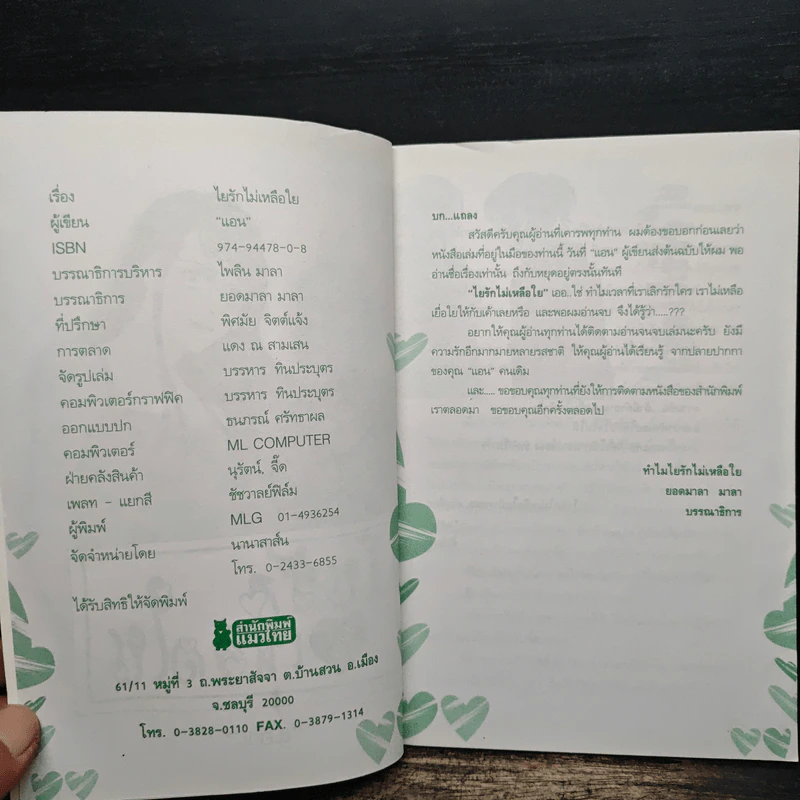 เรื่อง ไยรักไม่เหลือใย
ผู้เขียน "แอน"
ISBN 974-94478-0-8
บรรณาธิการบริหาร ไพลิน มาลา
บรรณาธิการ ยอดมาลา มาลา
ที่ปรึกษา พิศมัย จิตต์แจ้ง
การตลาด แดง ณ สามเสน
จัดรูปเล่ม บรรหาร ทินประบุตร
คอมพิวเตอร์กราฟฟิค บรรหาร ทินประบุตร
ออกแบบปก ธนภรณ์ ศรัทธาผล
คอมพิวเตอร์ ML COMPUTER
ฝ่ายคลังสินค้า นุรัตน์, จี๊ด
เพลท - แยกสี ชัชวาลย์ฟิล์ม
ผู้พิมพ์ MLG 01-4936254
จัดจำหน่ายโดย นานาสาส์น
โทร. 0-2433-6855
ได้รับสิทธิให้จัดพิมพ์
สำนักพิมพ์
แมวไทย
61/11 หมู่ที่ 3 ถ.พระยาสัจจา ต.บ้านสวน อ.เมือง
จ.ชลบุรี 20000
โทร. 0-3828-0110 FAX. 0-3879-1314
บก...แถลง
สวัสดีครับคุณผู้อ่านที่เคารพทุกท่าน ผมต้องขอบอกก่อนเลยว่า
หนังสือเล่มที่อยู่ในมือของท่านนี้ วันที่ "แอน" ผู้เขียนส่งต้นฉบับให้ผม พอ
อ่านชื่อเรื่องเท่านั้น ถึงกับหยุดอยู่ตรงนั้นทันที
"ไยรักไม่เหลือใย" เออ..ใช่ ทำไมเวลาที่เราเลิกรักใคร เราไม่เหลือ
เยื่อใยให้กับเค้าเลยหรือ และพอผมอ่านจบ จึงได้รู้ว่า.....???
อยากให้คุณผู้อ่านทุกท่านได้ติดตามอ่านจนจบเล่มนะครับ ยังมี
ความรักอีกมากมายหลายรสชาติ ให้คุณผู้อ่านได้เรียนรู้ จากปลายปากกา
ของคุณ "แอน" คนเดิม
และ..... ขอขอบคุณทุกท่านที่ยังให้การติดตามหนังสือของสำนักพิมพ์
เราตลอดมา ขอขอบคุณอีกครั้งตลอดไป
ทำไมไยรักไม่เหลือใย
ยอดมาลา มาลา
บรรณาธิการ